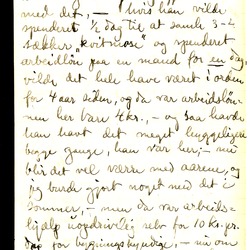 med det, — hvis han vilde
spenderet ½ dag til at samle 3-4
sækker "kvitmose" og spenderet
arbeidløn paa en mand for en dag,
vilde det hele have været i orden
for 4 aar siden, og da var arbeidsløn-
nen her bare 4 kr., — og saa havde
han havt det meget hyggeligere
begge gange, han var her; — nu
blir det vel værre med aarene, og
jeg burde gjort noget med det i
sommer, — men da var arbeids-
hjælp uopdrivelig selv for 10 kr. pr.
dag for bygningskyndige, — nu om